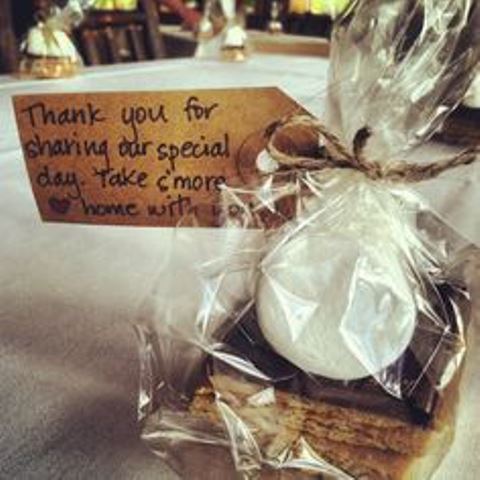 Thank you for
sharing our special
day. Take s'more
♥ home with you